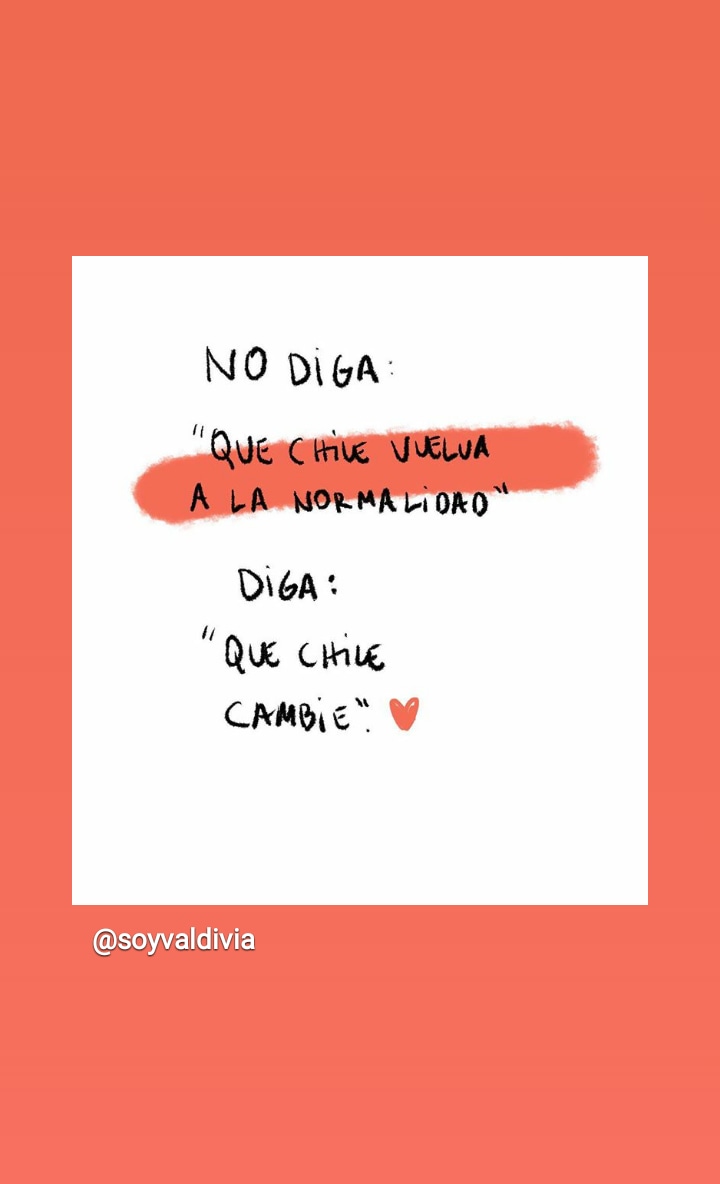 NO DiGA:
"QUE CHiLE VUELVA
A LA NORMALiDAD"
DiGA:
"QUE CHiLE
CAMBiE".
@soyvaldivia